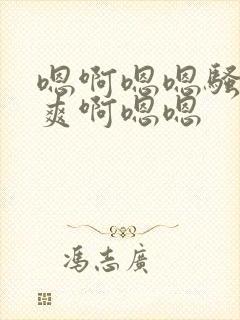 嗯啊嗯嗯骚
爽啊嗯嗯
冯志广